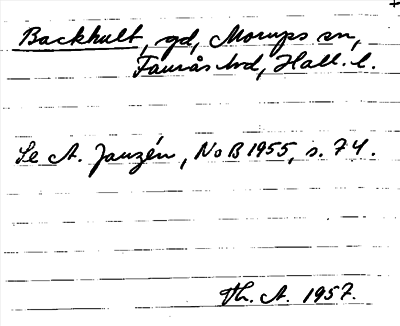 Backhult, gd, Morups sn,
Faurås hd, Hall. l.
Se A. Janzén, NoB 1955, s. 74.
Th. A. 1957.